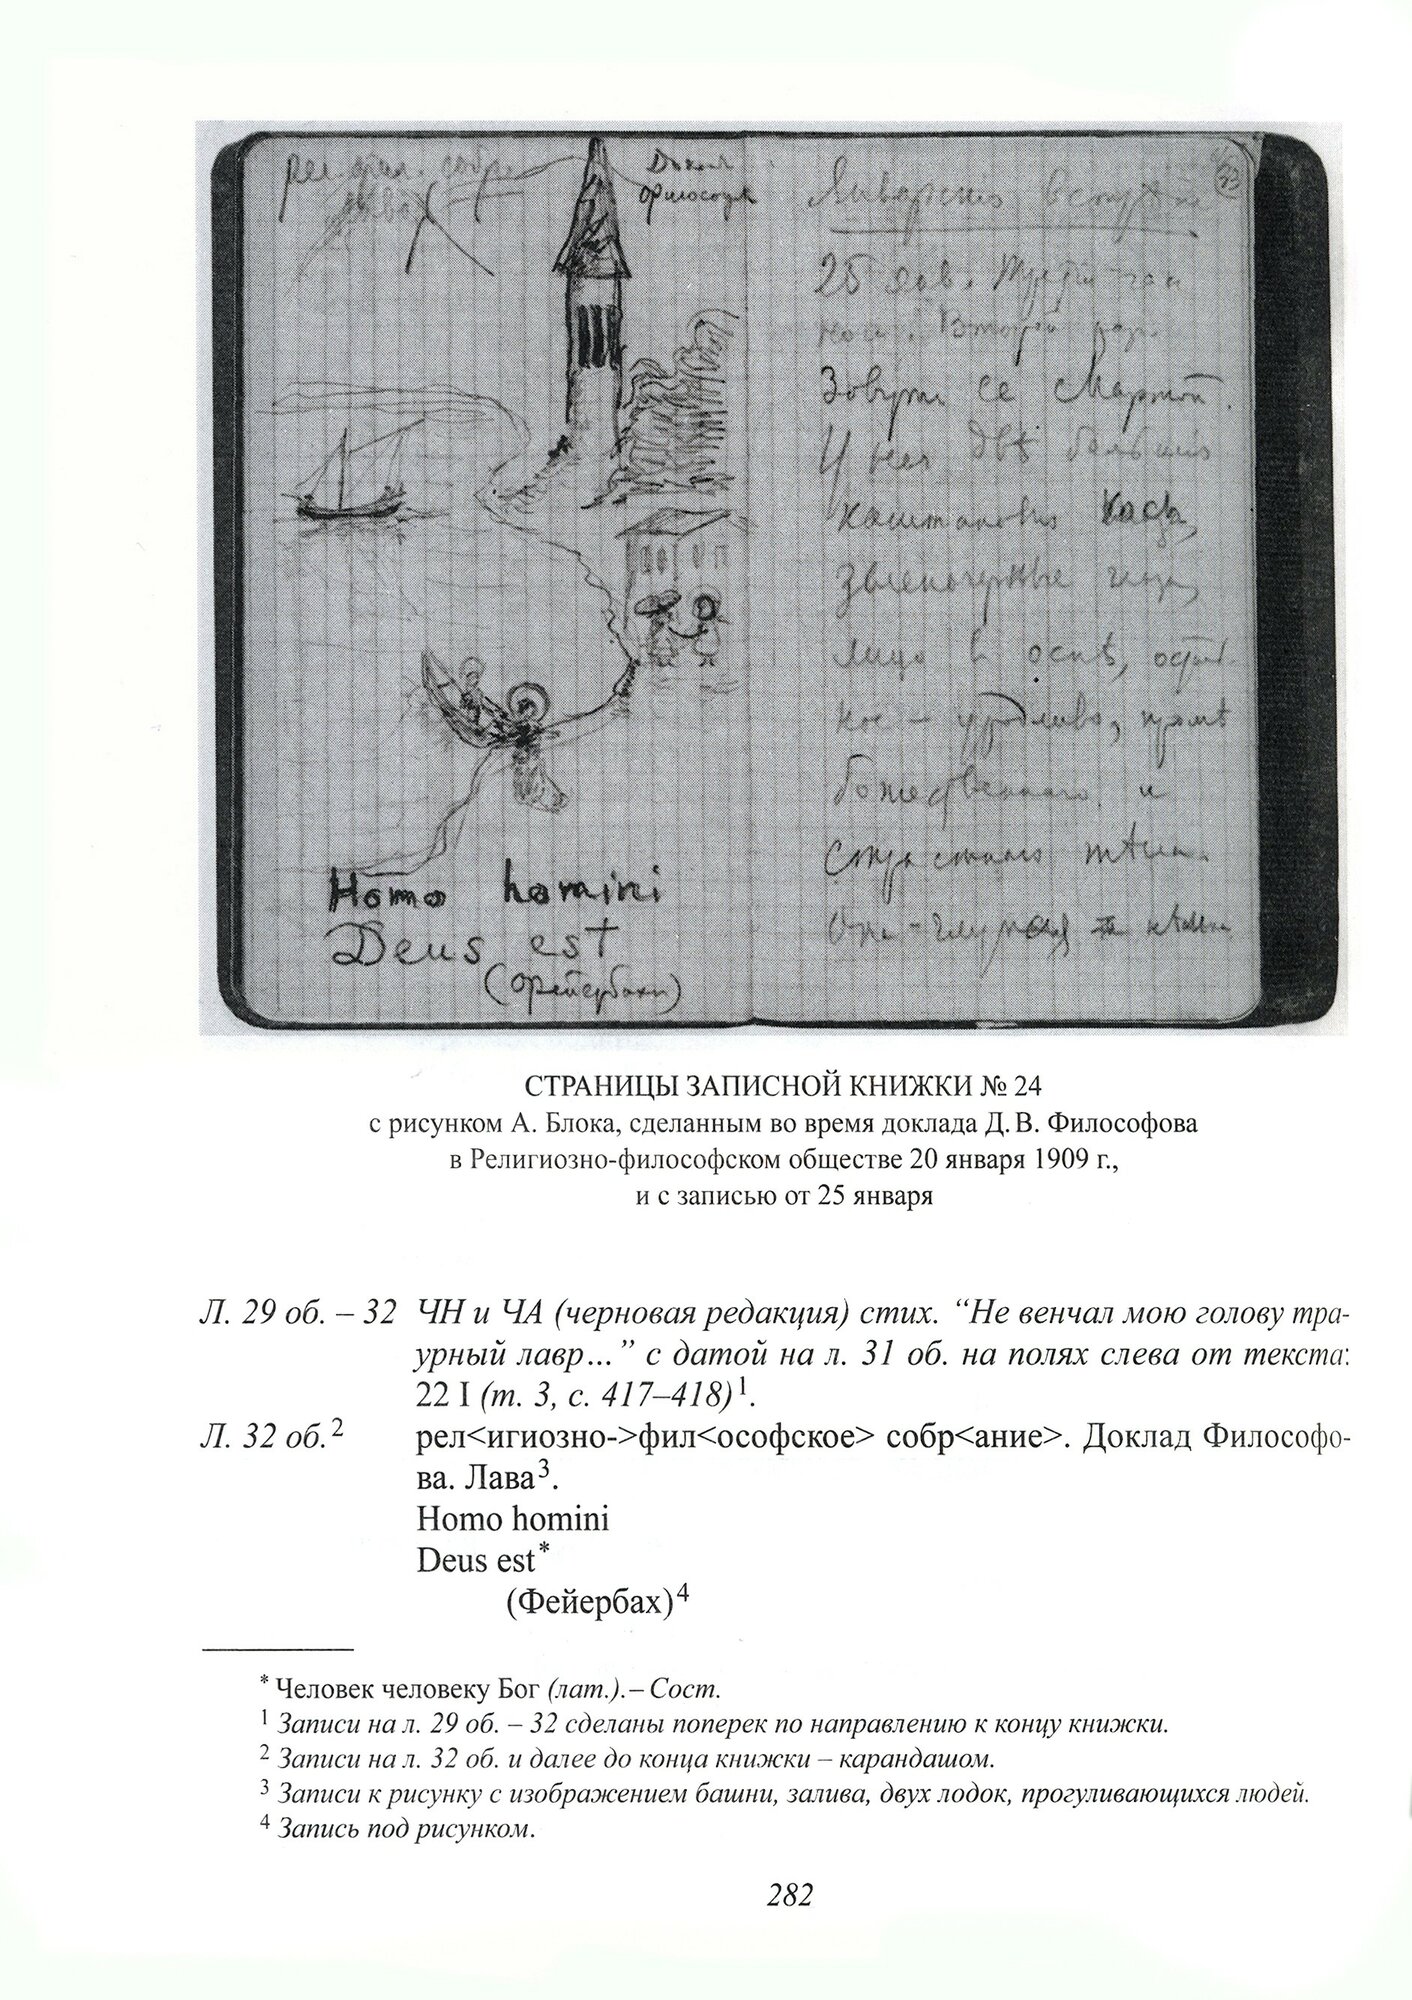 рел. фил. собр
Лава
Доклад
Философова
Homo homini
Deus est
(Фейербах)
33
Январская встреча
25 янв. Третий час
ночи. Второй раз.
Зовут ее Мартой.
У нея двѣ большія
каштановыя косы,
зеленочерные глаза,
лицо в оспѣ, осталь-
ное – уродливо, кромѣ
божественнаго и
страстнаго тѣла.
Она – глупая
СТРАНИЦЫ ЗАПИСНОЙ КНИЖКИ № 24
с рисунком А. Блока, сделанным во время доклада Д. В. Философова
в Религиозно-философском обществе 20 января 1909 г.,
и с записью от 25 января
Л. 29 об. – 32 ЧН и ЧА (черновая редакция) стих. “Не венчал мою голову тра-
урный лавр...” с датой на л. 31 об. на полях слева от текста:
22 I (т. 3, с. 417–418)1.
Л. 32 об.2 рел<игиозно->фил<ософское> собр<ание>. Доклад Философо-
ва. Лава3.
Homo homini
Deus est*
(Фейербах)4
* Человек человеку Бог (лат.).– Сост.
1 Записи на л. 29 об. – 32 сделаны поперек по направлению к концу книжки.
2 Записи на л. 32 об. и далее до конца книжки – карандашом.
3 Записи к рисунку с изображением башни, залива, двух лодок, прогуливающихся людей.
4 Запись под рисунком.
282